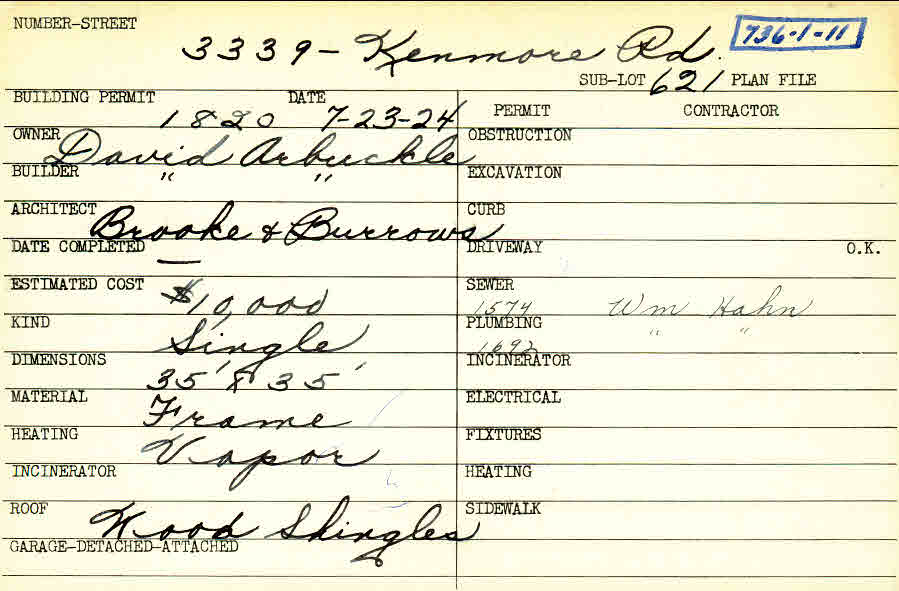 NUMBER-STREET
3339 - Kenmore Rd. 736-1-11
SUB-LOT 621 PLAN FILE
BUILDING PERMIT 1820 DATE 7-23-24
PERMIT CONTRACTOR
OWNER David Arbuckle
OBSTRUCTION
BUILDER " "
EXCAVATION
ARCHITECT Brooke & Burrows
CURB
DATE COMPLETED —
DRIVEWAY O.K.
ESTIMATED COST $10,000
SEWER 1574 Wm Hahn
KIND Single
PLUMBING 1692 " "
DIMENSIONS 35' x 35'
INCINERATOR
MATERIAL Frame
ELECTRICAL
HEATING Vapor
FIXTURES
INCINERATOR
HEATING
ROOF Wood Shingles
SIDEWALK
GARAGE-DETACHED-ATTACHED